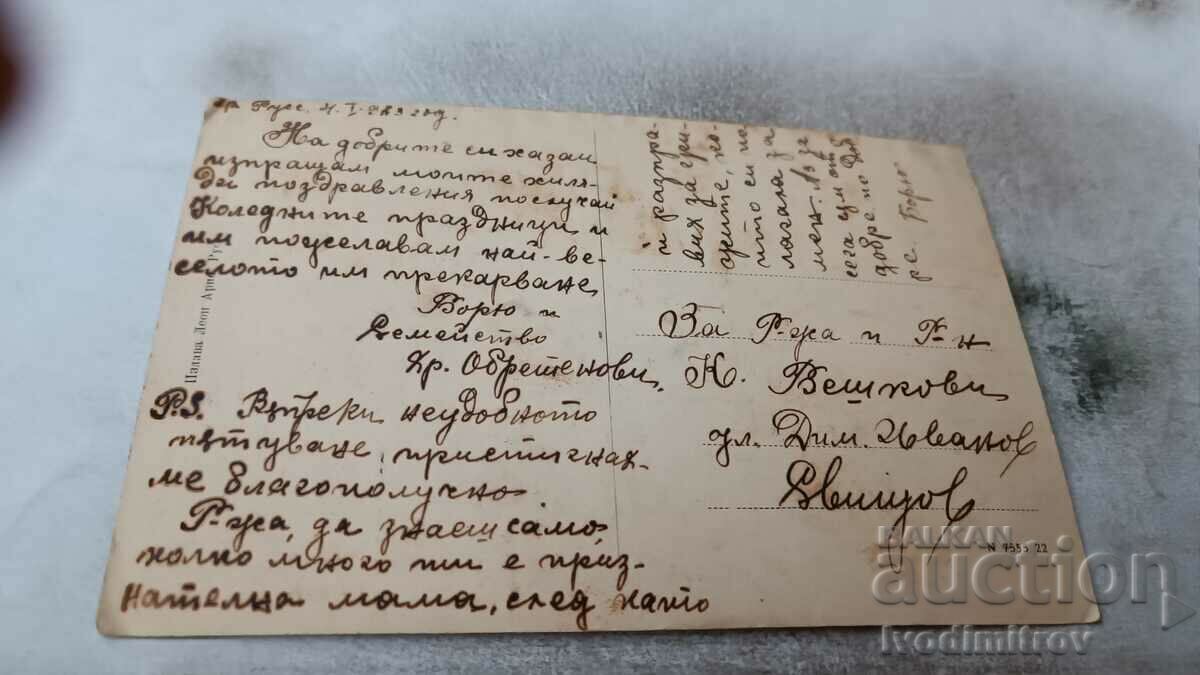 гр. Русе. 4. I. год.
На добрите си хазаи
изпращам моите хиля-
ди поздравления по случай
Коледните праздници и
им поджелавам най-ве-
селото им прекарване
Борю и
Семейство
Хр. Обретенови.
P.S. Въпреки неудобното
пътуване, пристигнах-
ме благополучно.
Г-жа, да знаеш само,
колко много ти е приз-
нателна мама, след като
и разпра-
вих за гри-
жите, ко-
ито си по-
лагала за
мен. Аз за
сега съм от
добре по доб
ре. Борю
За Г-жа и Г-н
К. Вешкови
ул. Дим. Иванов
Свищов
Издава Леон Арие, Ру
N 7555 22
BALKAN
auction
Ivodimitrov